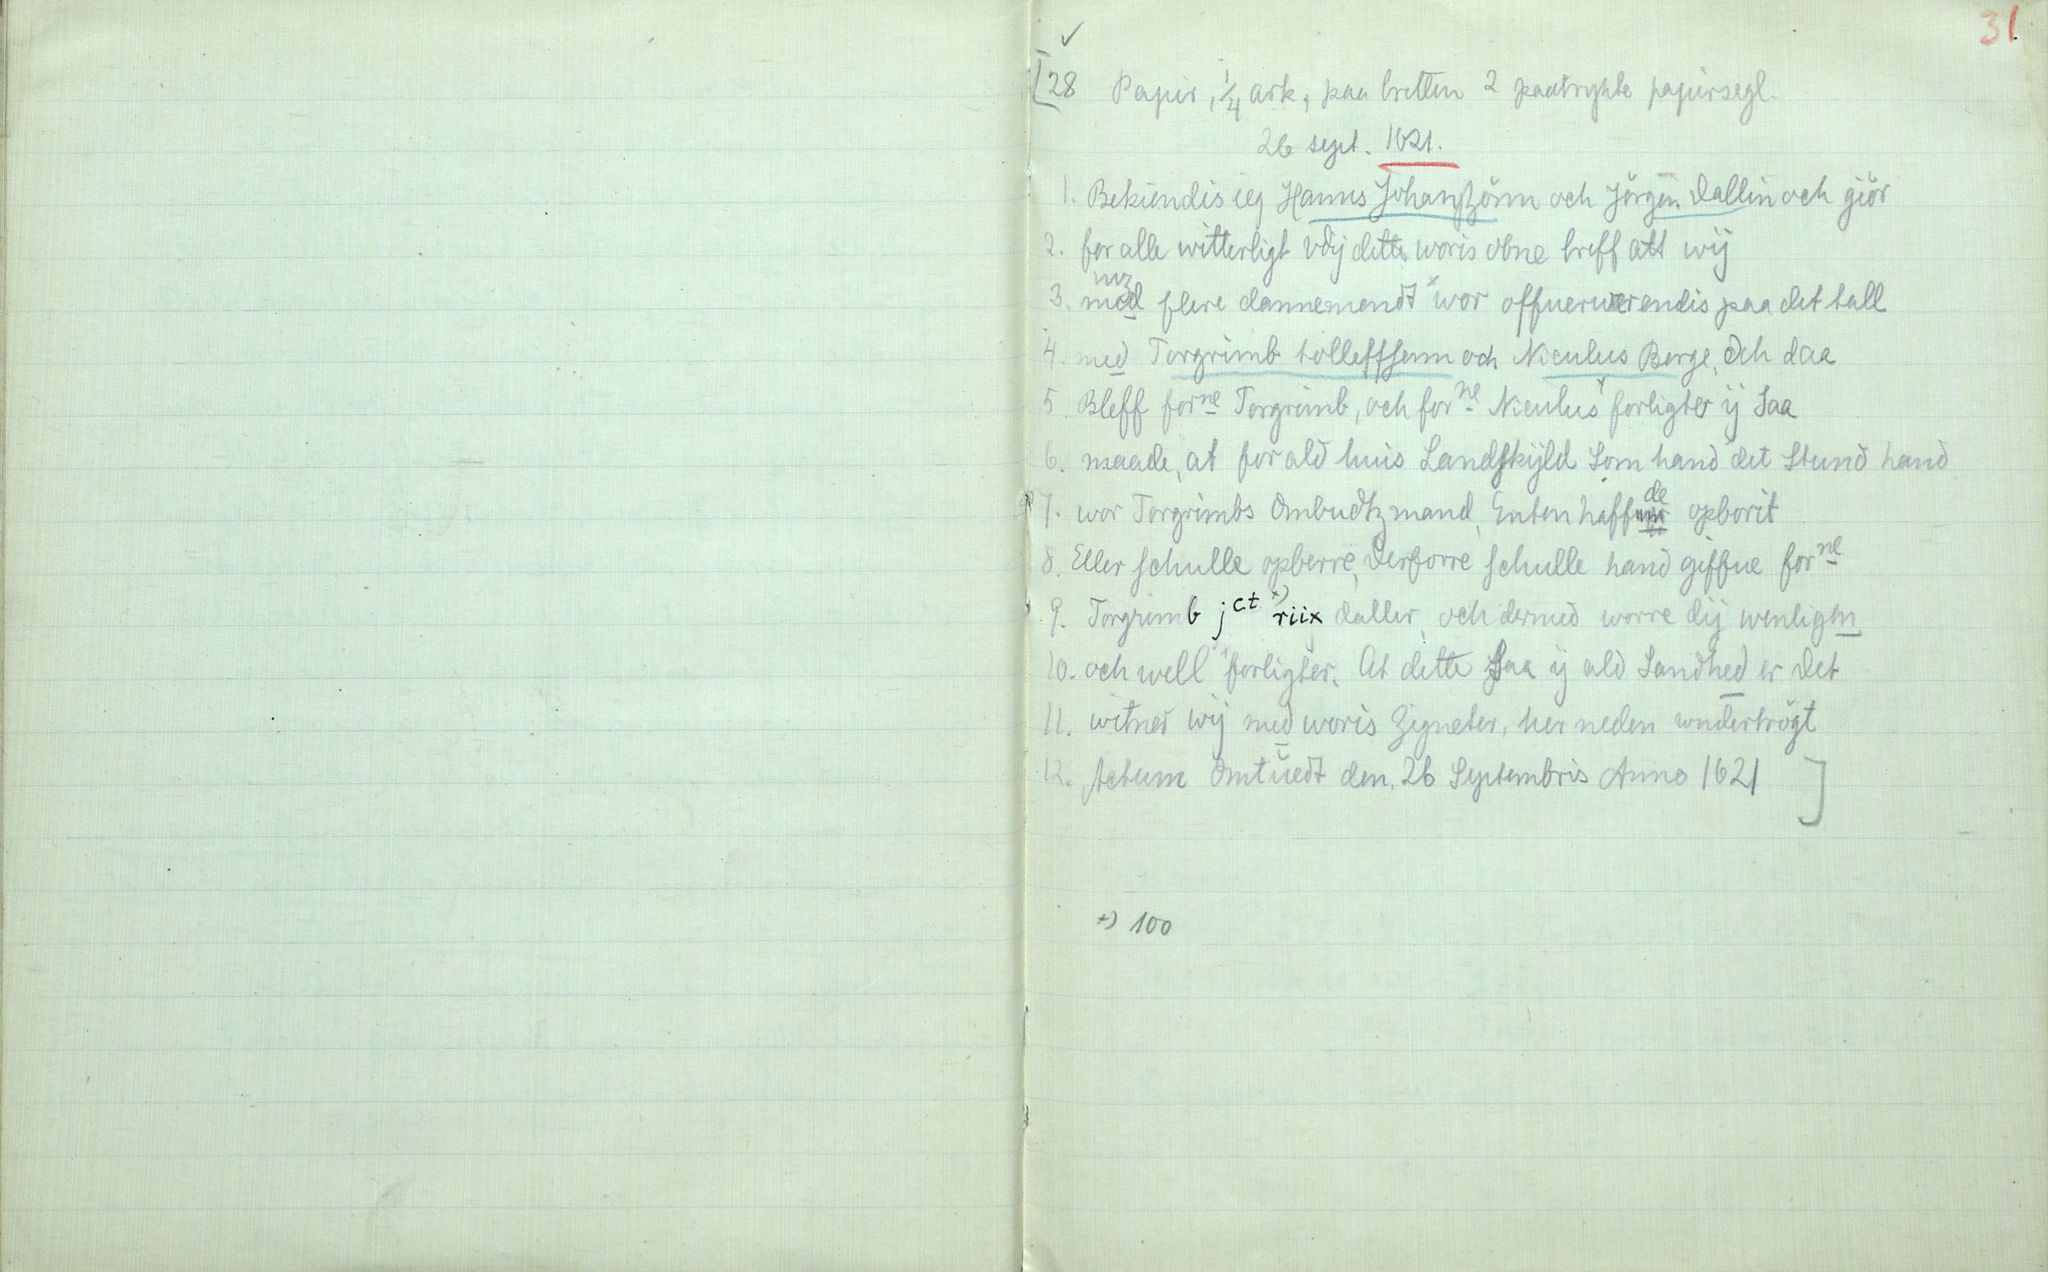 31
✓
[28 Papir, 1/4 ark, paa bretten 2 paatrykte papirsegl.
26 sept. 1621.
1. Bekiendis ieg Hanns Johanßönn och Jörgen Dallin och giör
2. for alle witterligt vdij dette woris obne breff att wij
mz
3. med flere dannemendt wor offuerwerendis paa det tall
4. med Torgrimb tolleffsenn och Niculus Berge, Och daa
5. Bleff forne Torgrimb, och forne Niculus forligter ij Saa
6. maade, at for ald huis Landskÿld Som hand det Stund hand
7. wor Torgrimbs Ombudtzmand, Enten haffde opborit
8. Eller schulle opberre, Derforre schulle hand giffue forne
9. Torgrimb jct +) riix daller, och dermed worre dij wenligen
10. och well forligter. At dette Saa ij ald Sandhed er Det
11. witner wij med woris Zigneter, her neden wndertrögt
12. Actum Omtuedt den. 26 Septembris Anno 1621 ]
+) 100